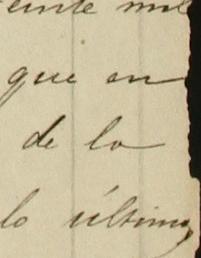 einte mil
que en
de lo
lo último,